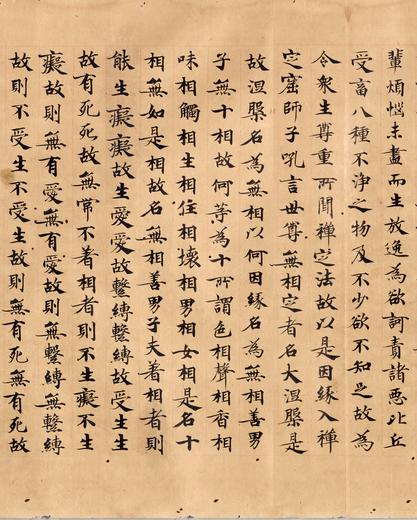 輩煩惱未盡而生放逸為欲訶責諸惡比丘
受畜八種不淨之物及不少欲不知足故為
令眾生尊重所聞禪定法故以是因緣入禪
定窟師子吼言世尊無相定者名大涅槃是
故涅槃名為無相以何因緣名為無相善男
子無十相故何等為十所謂色相聲相香相
味相觸相生相住相壞相男相女相是名十
相無如是相故名無相善男子夫著相者則
能生癡癡故生愛愛故繫縛繫縛故受生生
故有死死故無常不著相者則不生癡不生
癡故則無有愛無有愛故則無繫縛無繫縛
故則不受生不受生故則無有死無有死故